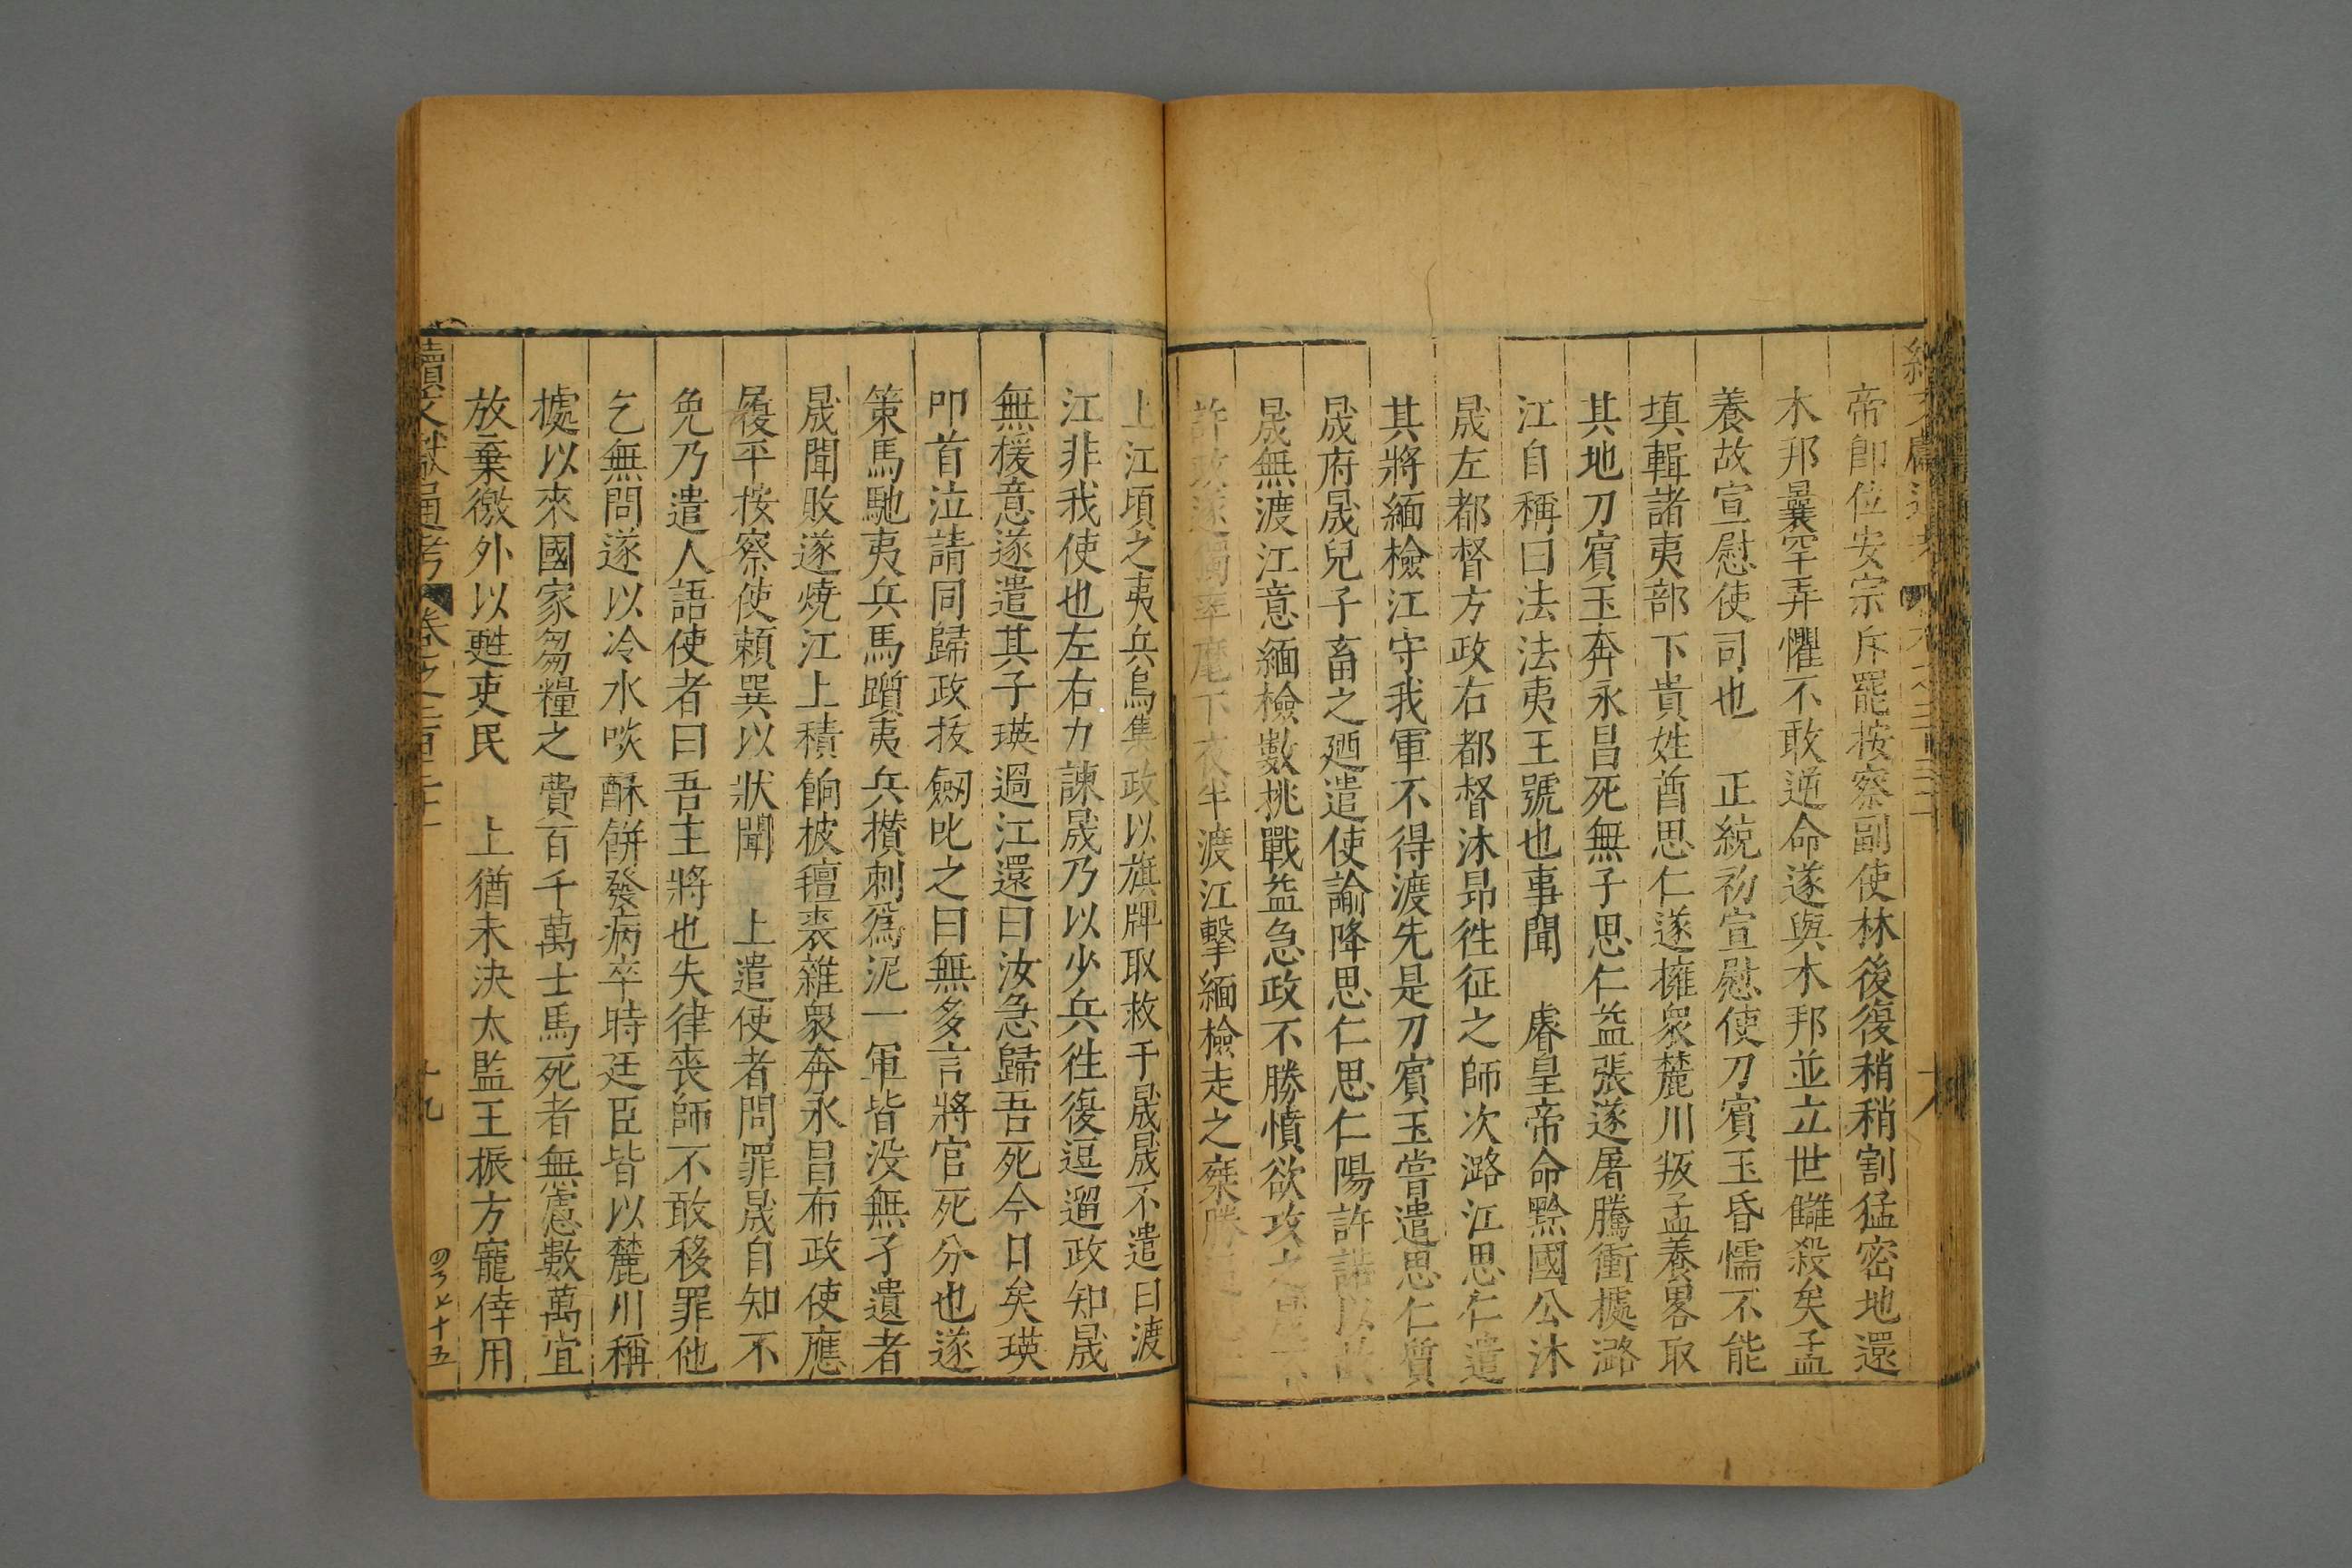 帝卽位安宗斥罷按察副使林後復稍稍割猛密地還
木邦曩罕弄懼不敢逆命遂與木邦並立世讎殺矣孟
養故宣慰使司也 正統初宣慰使刀賓玉昏懦不能
填輯諸夷部下貴姓酋思仁遂擁衆麓川叛孟養畧取
其地刀賓玉奔永昌死無子思仁益張遂屠騰衝據潞
江自稱曰法法夷王號也事聞 睿皇帝命黔國公沐
晟左都督方政右都督沐昂徃征之師次潞江思仁遣
其將緬檢江守我軍不得渡先是刀賓玉嘗遣思仁質
晟府晟兒子畜之廼遣使諭降思仁思仁陽許諾以
晟無渡江意緬檢數挑戰益急政不勝憤欲攻
許政遂獨率麾下 半渡江擊緬檢走之乘勝
上江頃之夷兵鳥集政以旗牌取救于晟晟不遣曰渡
江非我使也左右力諫晟乃以少兵徃復逗遛政知晟
無援意遂遣其子瑛過江還曰汝急歸吾死今日矣瑛
叩首泣請同歸政拔劒叱之曰無多言將官死分也遂
策馬馳夷兵馬躓夷兵攅刺爲泥一軍皆没無孑遺者
晟聞敗遂燒江上積餉披氊裘雜衆奔永昌布政使應
履平按察使賴巽以狀聞 上遣使者問罪晟自知不
免乃遣人語使者曰吾主將也失律喪師不敢移罪他
乞無問遂以冷水啖酥餅發病卒時廷臣皆以麓川稱
據以來國家芻糧之費百千萬士馬死者無慮數萬宜
放棄徼外以甦吏民 上猶未決太監王振方寵倖用
續文獻通考 卷之二百三十 十九
四千七十五